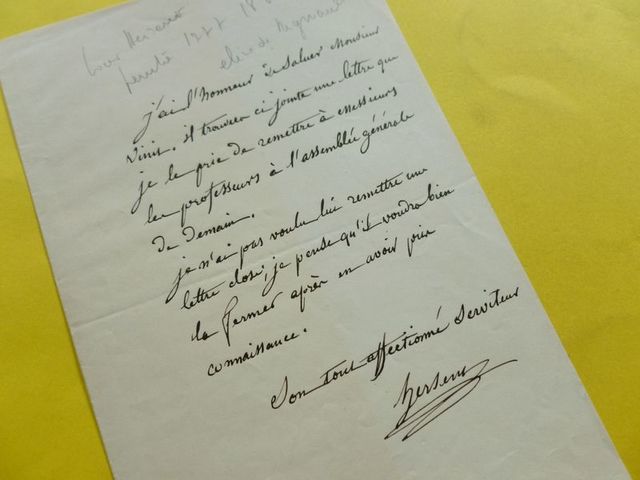 j'ai l'honneur de saluer Monsieur
Vinit. il trouvera ci jointe une lettre que
je le prie de remettre à Messieurs
les professeurs à l'assemblée générale
de demain.
je n'ai pas voulu lui remettre une
lettre close; je pense qu'il voudra bien
la fermer après en avoir pris
connaissance.
Son tout affectionné Serviteur
hersent